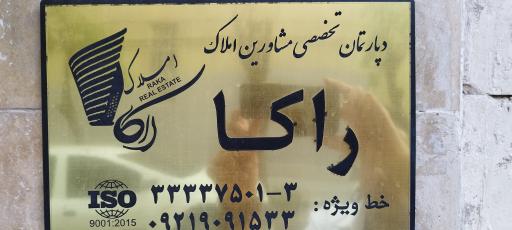 دپارتمان تخصصی مشاورین املاک
املاک
RAKA
REAL ESTATE
راکا
راکا
خط ویژه: ۳۳۳۳۷۵۰۱-۳
۰۹۲۱۹۰۹۱۵۳۳
ISO
9001:2015